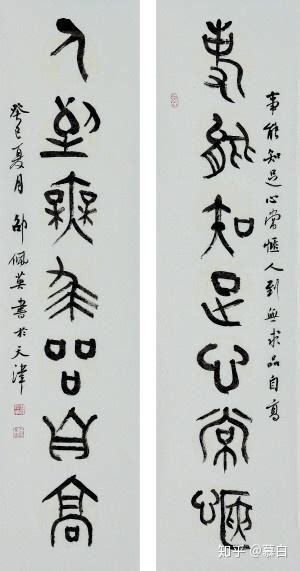 事能知足心常愜人到無求品自高
事能知足心常愜
人到無求品自高
癸巳夏月邵佩英書於天津
知乎 @慕白